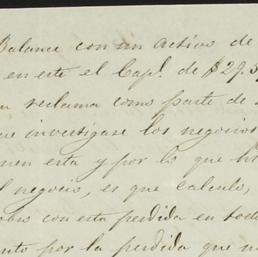 Balance con un activo de
en este el Capl. de $29.3
reclama como parte de
investigase los negocios
nen esta y por lo que h
l negocio, es que calculo,
con esta perdida en tod
nto por la perdida que m